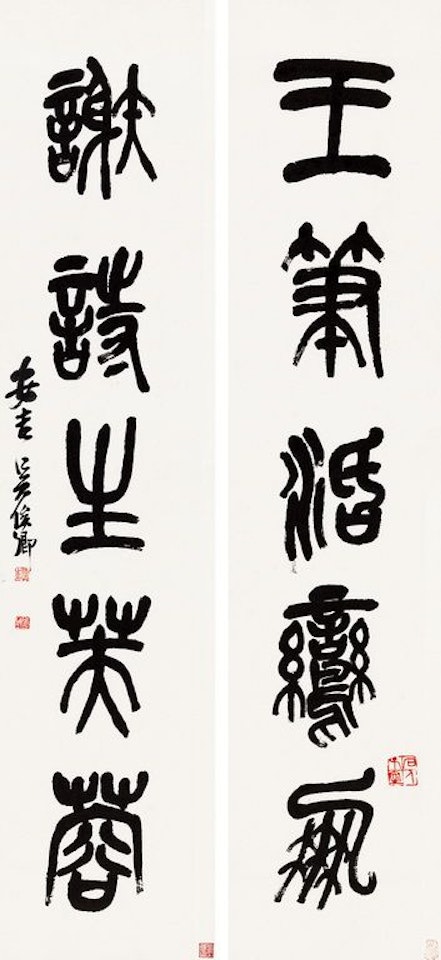 王筆活鸞鳳
謝詩生芙蓉
安吉吳俊卿